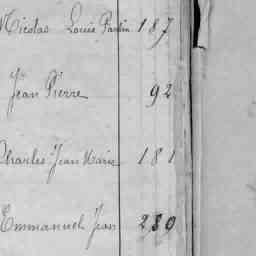 Nicolas Louis Paulin 187
Jean Pierre 92
Charles Jean Marie 181
Emmanuel Jean 289